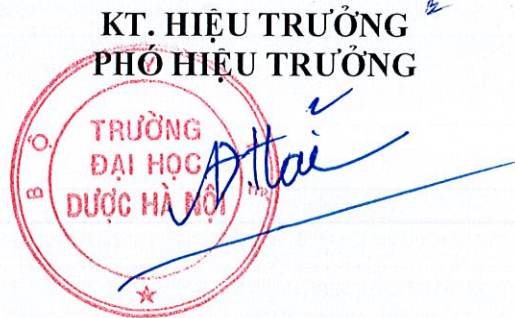 KT. HIỆU TRƯỞNG
PHÓ HIỆU TRƯỞNG
TRƯỜNG
ĐẠI HỌC
DƯỢC HÀ NỘI
BỘ